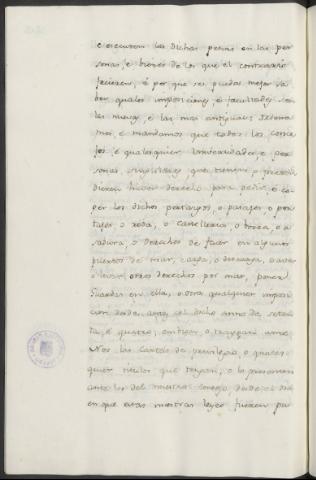 e executen las dichas penas en las per
sonas, e bienes de los que el contrario
ficieren, é por que se pueda mejor sa
ber quales imposiciones é facultades son
las nuevas, e las mas antiguas: Ordena
mos, e mandamos que todos los conce
jos, é qualesquier Universidades, e per
sonas, singulares que tienen, o pretendi
dieren haver derecho para pedir, e co
ger los dichos portazgos, o pasajes o pon
tajes, o roda, o castilleria, o borra, o a
sadura, o derechos de facer en algunos
puertos de mar, carga, o descarga, o aver
o llevar otros derechos por mar, poner
Guardas en ella, o otra qualquier imposi
cion desde antes del dicho anno de seten
ta, é quatro, embien, o traygan ante
Nos las cartas de previlegio, o quales
quier titulos que tengan, o la presenten
ante los del nuestro consejo, desde el dia
en que estas nuestras leyes fueren pu